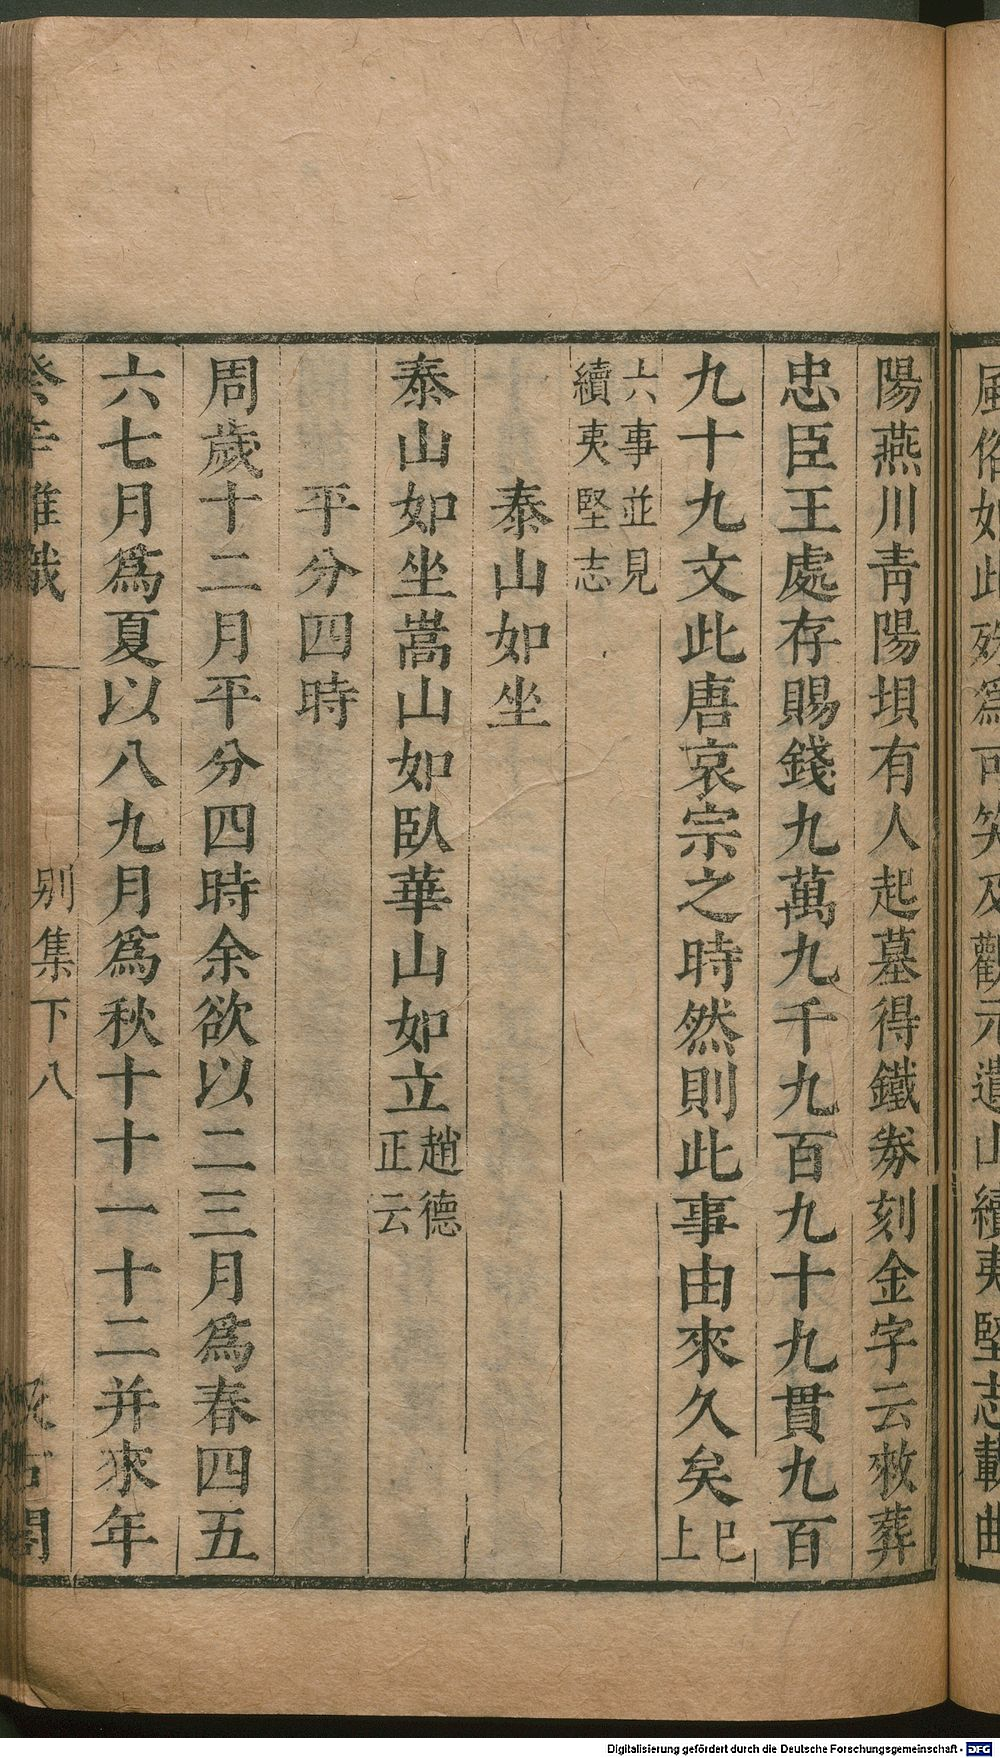 風俗如此殊爲可笑及觀元遺山續夷堅志載曲
陽燕川青陽垻有人起墓得鐵券刻金字云敕葬
忠臣王處存賜錢九萬九千九百九十九貫九百
九十九文此唐哀宗之時然則此事由來久矣巳上
六事並見續夷堅志
泰山如坐
泰山如坐嵩山如臥華山如立趙德正云
平分四時
周歲十二月平分四時余欲以二三月爲春四五
六七月爲夏以八九月爲秋十十一十二并來年
癸辛雜識
別集下
八
汲古閣
Digitalisierung gefördert durch die Deutsche Forschungsgemeinschaft - DFG